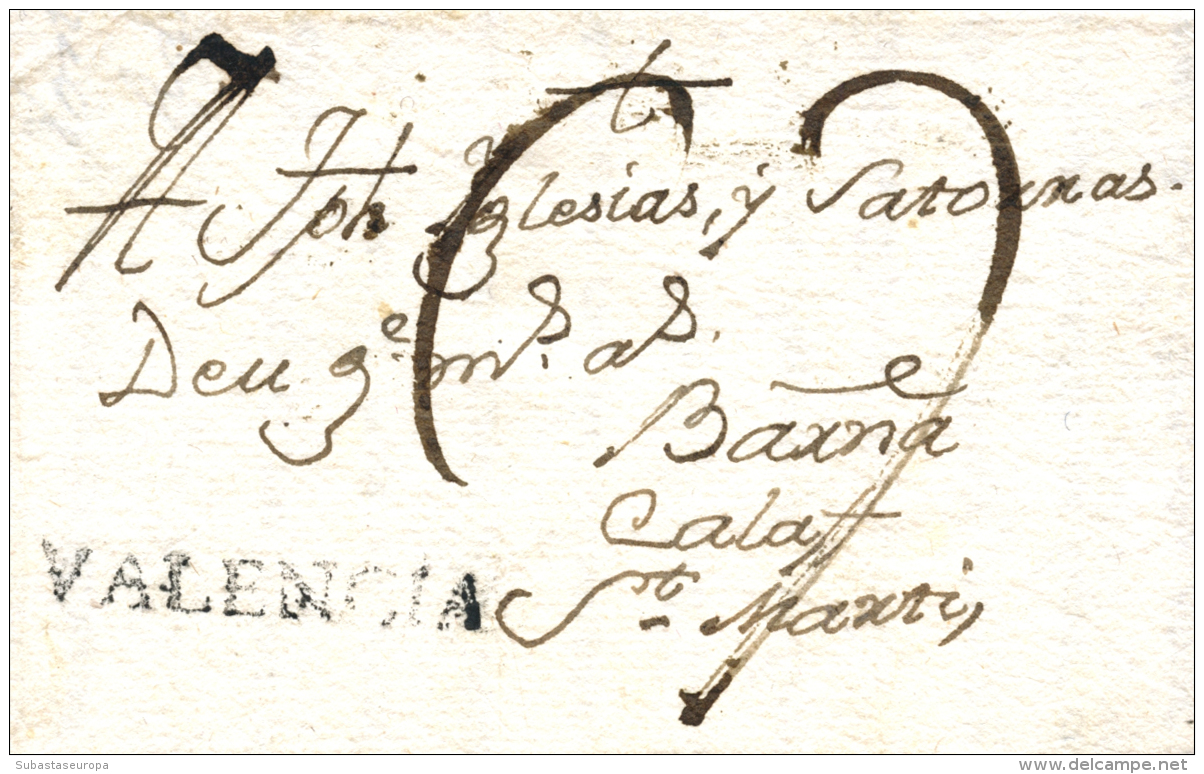 A Jph Yglesias, y Satorras.
Deu ge ms. as.
Barna
Calaf
St. Marti,
VALENCIA
Subastaseuropa
www.delcampe.net